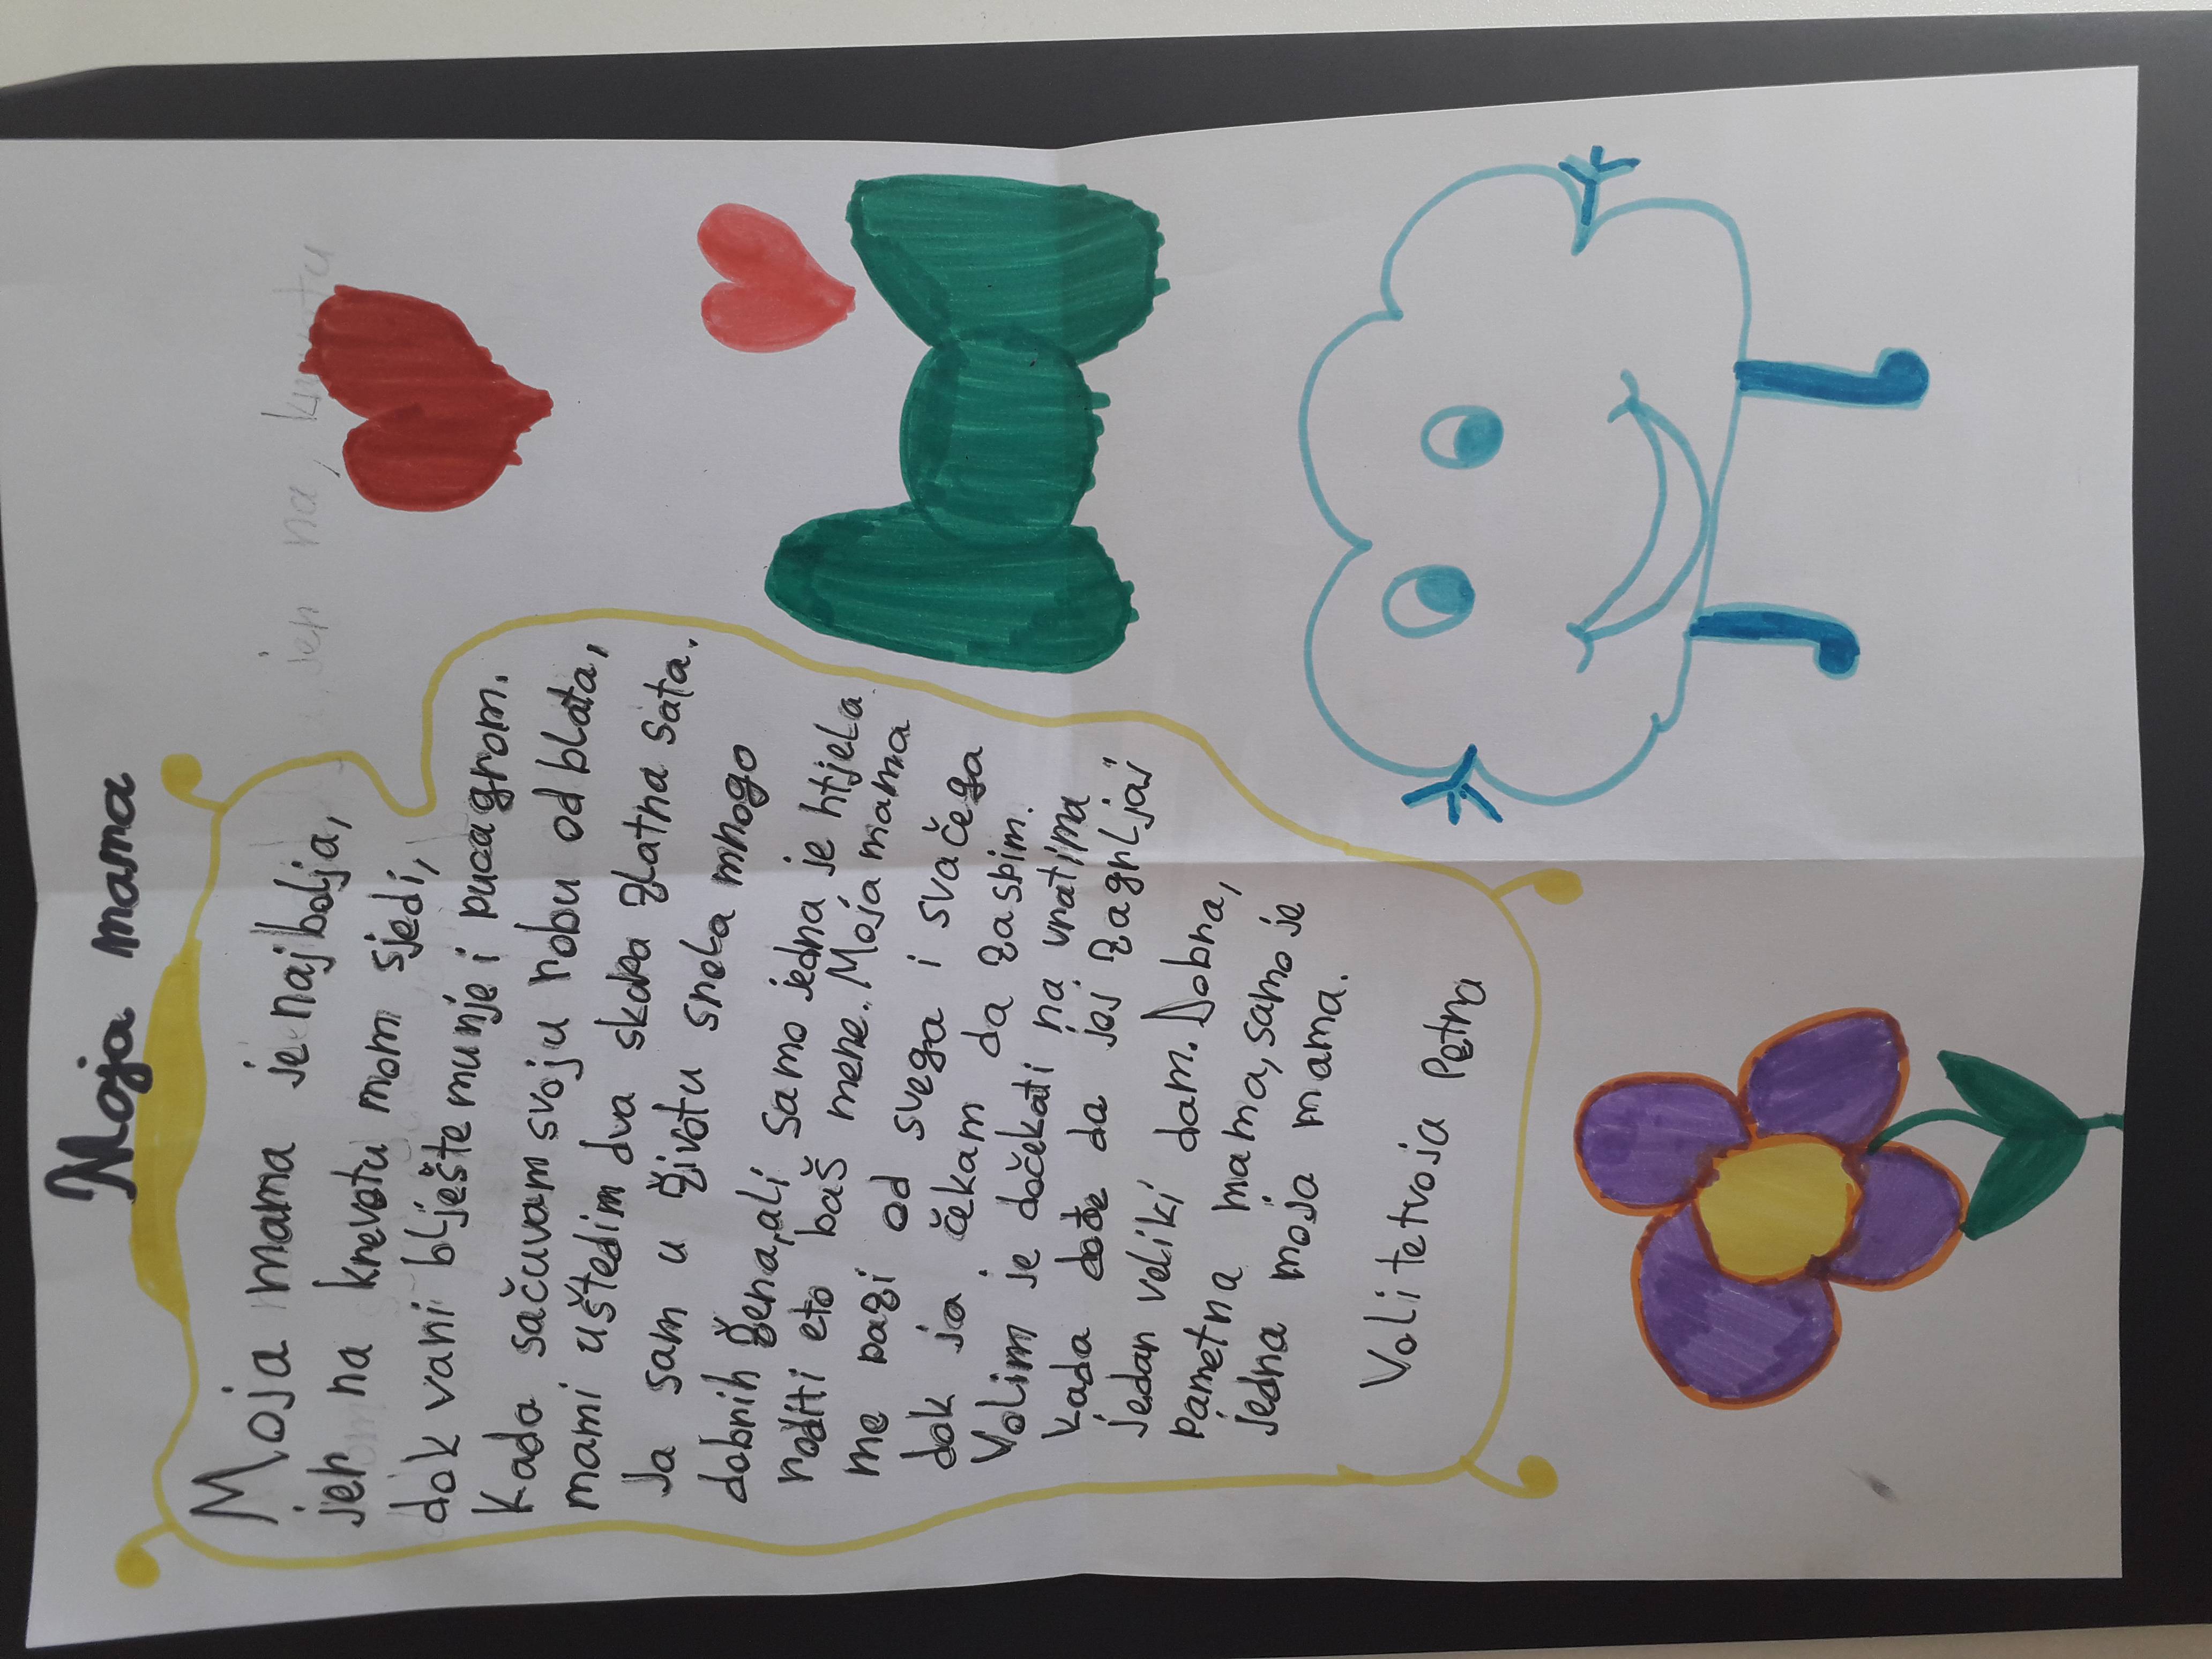 Moja mama
Moja mama je najbolja,
jer na krevetu mom sjedi,
dok vani bliješte munje i puca grom.
Kada sačuvam svoju robu od blata,
mami uštedim dva skoro zlatna sata.
Ja sam u životu srela mnogo
dobrih žena, ali samo jedna je htjela
roditi eto baš mene. Moja mama
me pazi od svega i svačega
dok ja čekam da zaspim.
Volim je dočekati na vratima
kada dođe da joj zagrljaj
jedan veliki dam. Dobra,
pametna mama, samo je
jedna moja mama.
Voli te tvoja Petra
jer na, krevetu